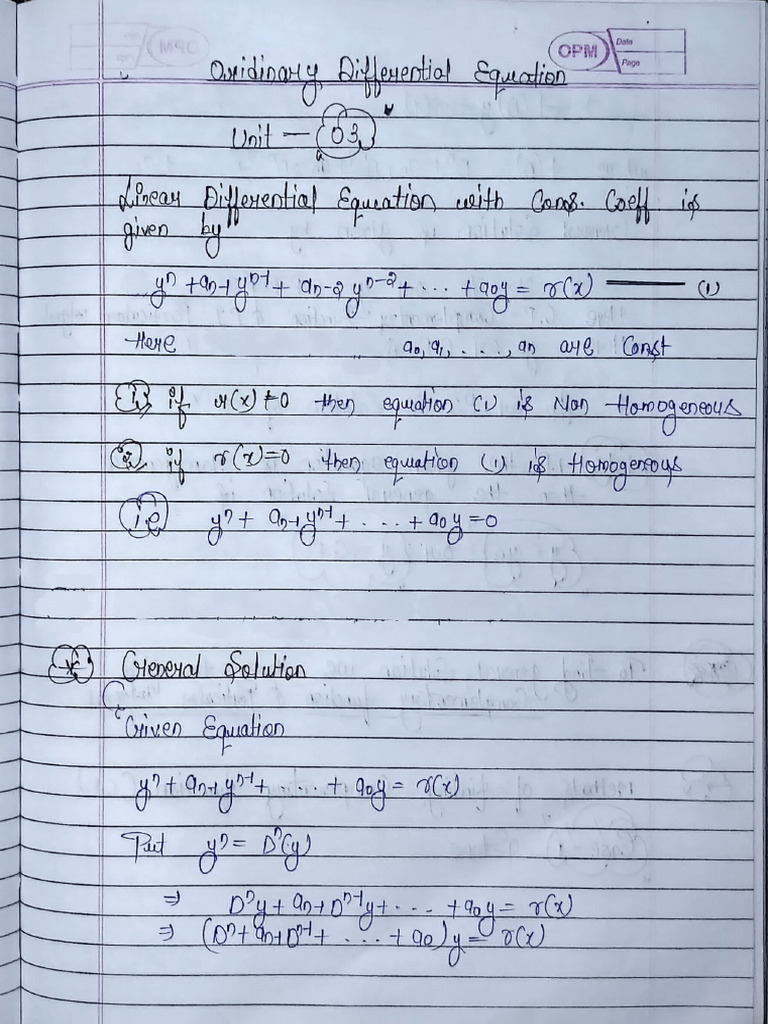 OPM
Date
Page
Oridinary Differential Equation
Unit — 03
Linear Differential Equation with Cons. Coeff is
given by
yⁿ + aₙ₋₁yⁿ⁻¹ + aₙ₋₂ yⁿ⁻² + ... + a₀y = r(x) —— (1)
Here a₀, a₁, ..., aₙ are Const
(1) if r(x) ≠ 0 then equation (1) is Non-Homogeneous
(2) if r(x) = 0 then equation (1) is Homogeneous
i.e yⁿ + aₙ₋₁yⁿ⁻¹ + ... + a₀y = 0
* General Solution
Given Equation
yⁿ + aₙ₋₁yⁿ⁻¹ + ... + a₀y = r(x)
Put yⁿ = Dⁿ(y)
⇒ Dⁿy + aₙ₋₁Dⁿ⁻¹y + ... + a₀y = r(x)
⇒ (Dⁿ + aₙ₋₁Dⁿ⁻¹ + ... + a₀)y = r(x)